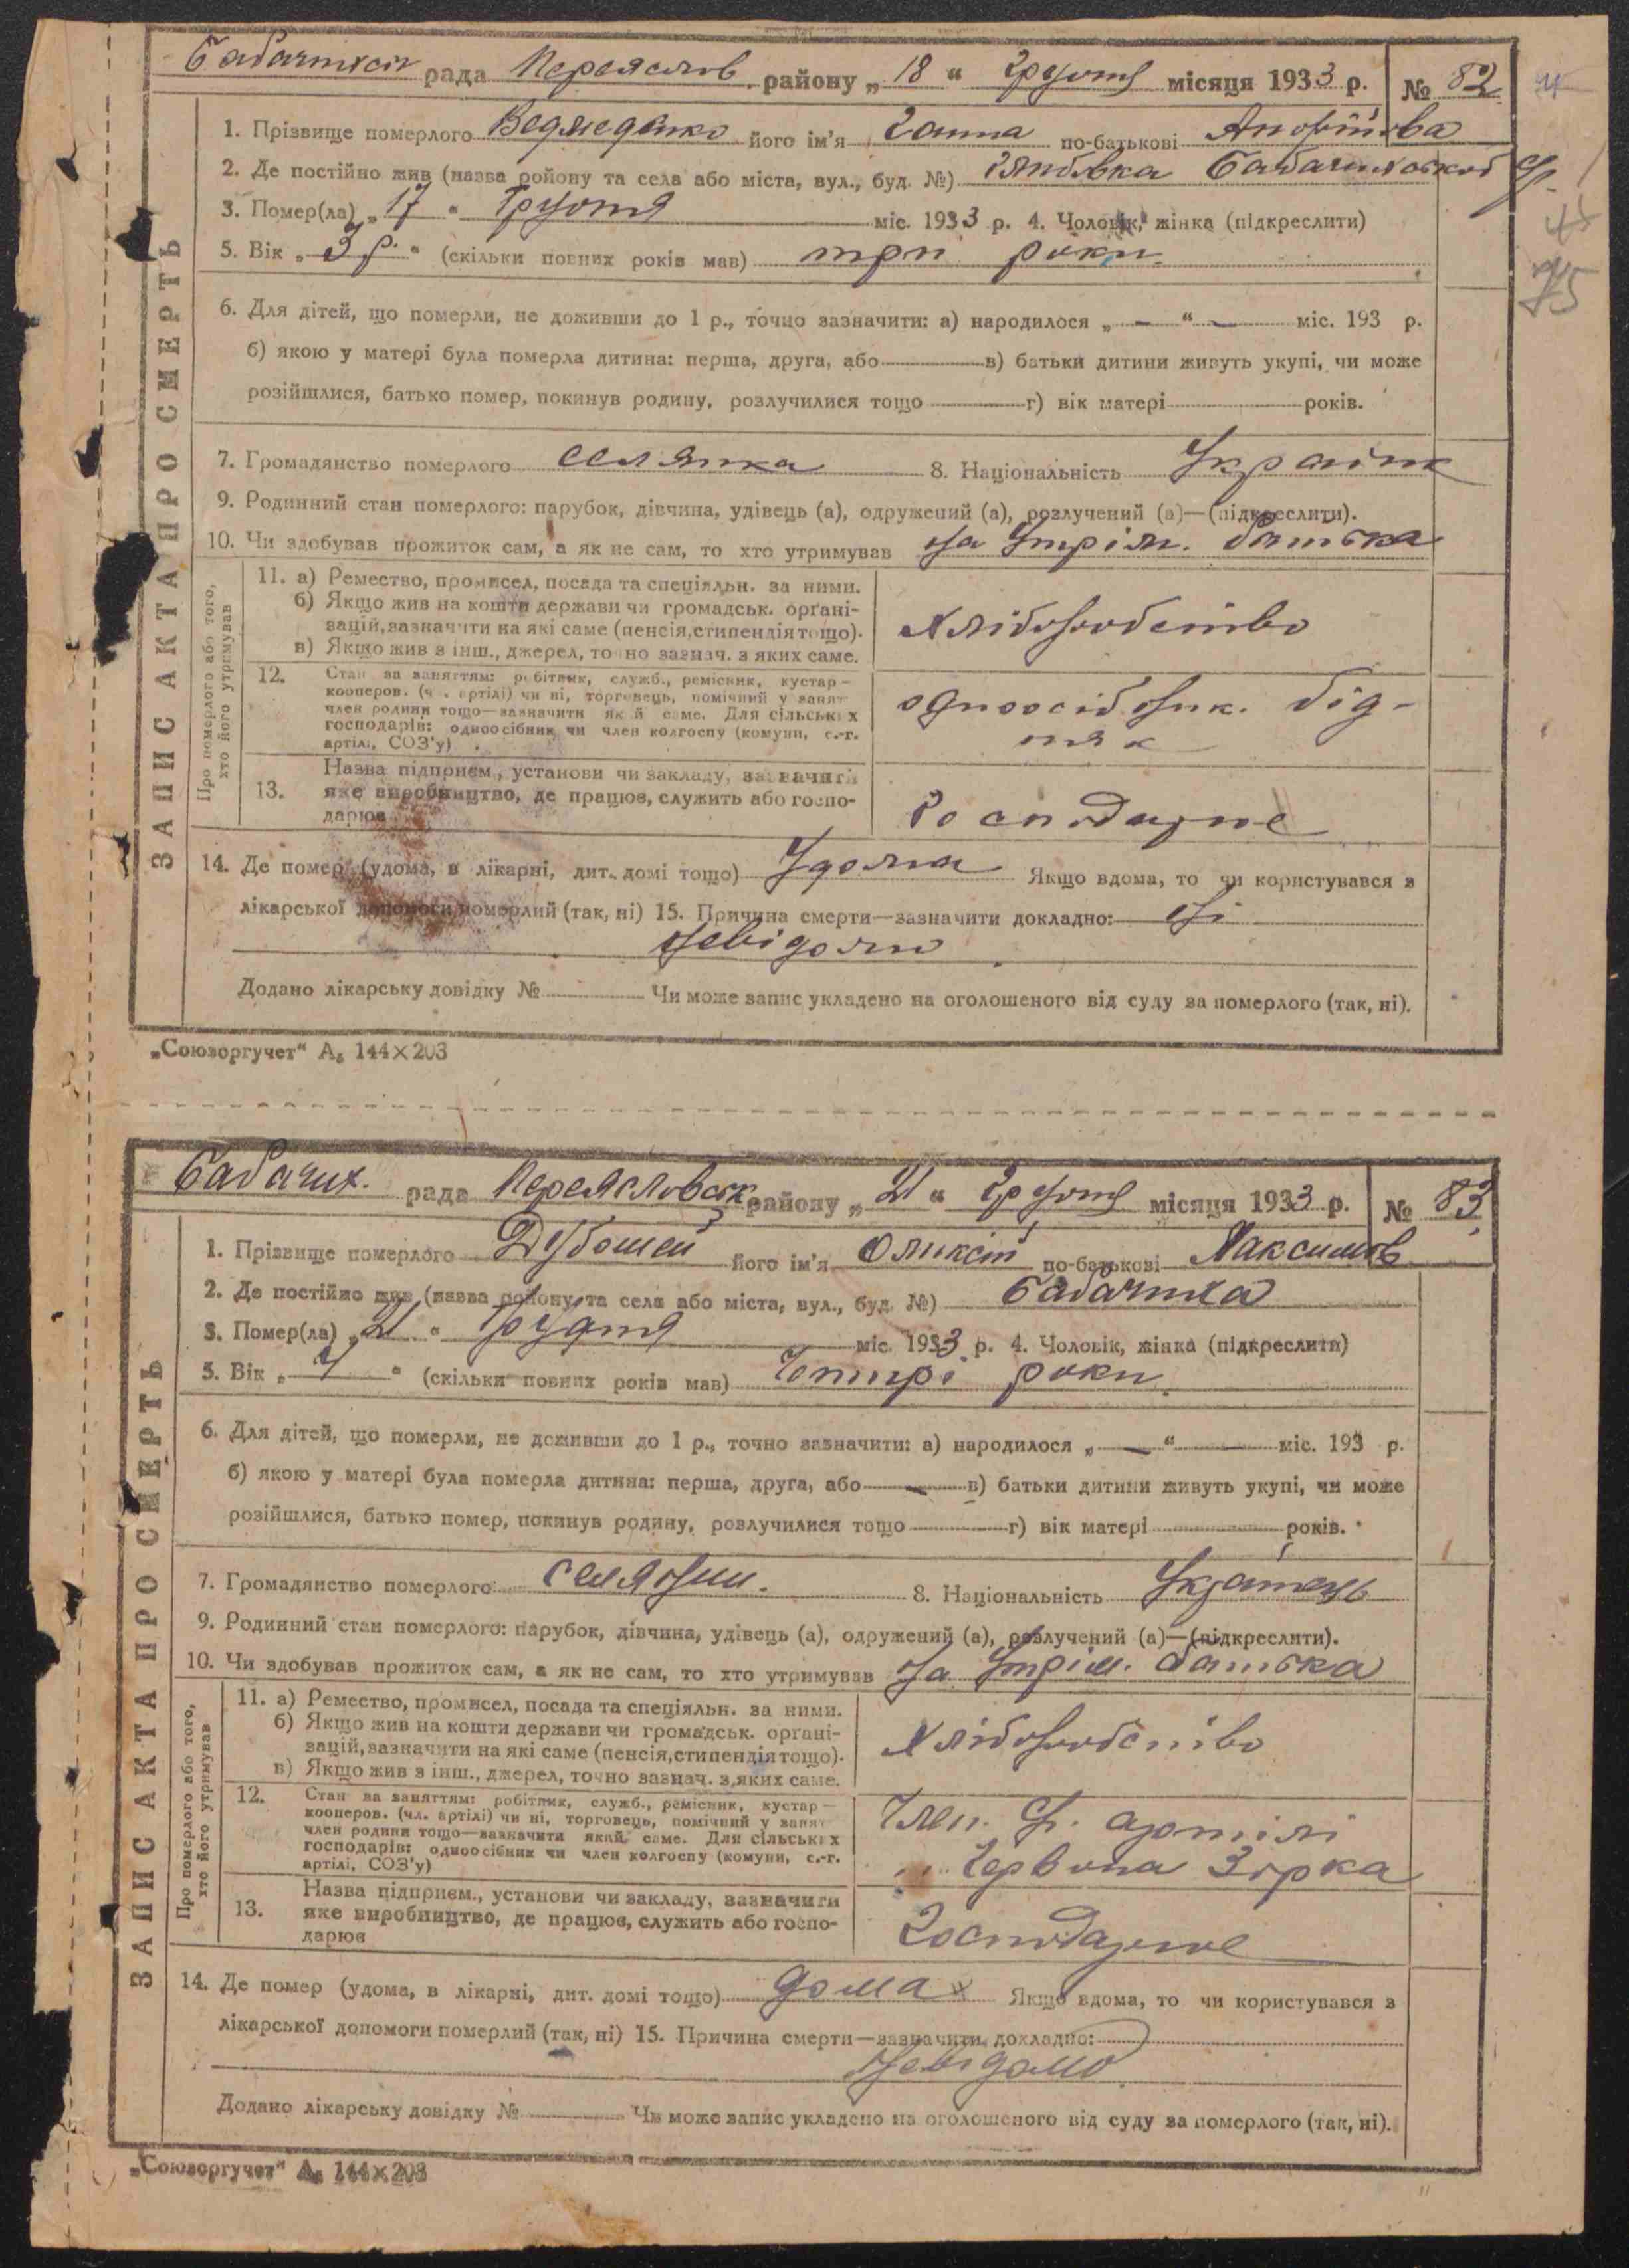 Бабачихск рада Переяслов району „18“ Грудтя місяця 1933 р. № 82
1. Прізвище померлого Ведмеденко його ім'я Ганна по-батькові
2. Де постійно жив (назва району та села або міста, вул., буд. №) Бабачиховской
3. Помер(ла) „17“ Грудтя міс. 1933 р. 4. Чоловік, жінка (підкреслити)
5. Вік „3 р.“ (скільки повних років мав) три роки.
6. Для дітей, що померли, не доживши до 1 р., точно зазначити: а) народилося „—“ — міс. 193 р.
б) якою у матері була померла дитина: перша, друга, або в) батьки дитини живуть укупі, чи може
розійшлися, батько помер, покинув родину, розлучилися тощо г) вік матері років.
7. Громадянство померлого селянка 8. Національність Українк
9. Родинний стан померлого: парубок, дівчина, удівець (а), одружений (а), розлучений (а)—(підкреслити).
10. Чи здобував прожиток сам, а як не сам, то хто утримував На Утрім. батька
ЗАПИС АКТА ПРО СМЕРТЬ
Про померлого або того, хто його утримував
11. а) Ремество, промисел, посада та спеціяльн. за ними.
б) Якщо жив на кошти держави чи громадськ. органі-
зацій, зазначити на які саме (пенсія, стипендія тощо).
в) Якщо жив з інш., джерел, точно зазнач. з яких саме.
Хліборобство
12. Стан за заняттям: робітник, служб., ремісник, кустар—
кооперов. (чл. артілі) чи ні, торговець, помічний у занят
член родини тощо—зазначити який саме. Для сільських
господарів: одноосібник чи член колгоспу (комуни, с.-г.
артілі, СОЗ'у)
одноосібник. бід-
няк
13. Назва підприєм., установи чи закладу, зазначити
яке виробництво, де працює, служить або госпо-
дарює
Господарює
14. Де помер (удома, в лікарні, дит. домі тощо) Удома Якщо вдома, то чи користувався з
лікарської допомоги померлий (так, ні) 15. Причина смерти—зазначити докладно: Ні
Невідомо
Додано лікарську довідку № Чи може запис укладено на оголошеного від суду за померлого (так, ні).
„Союзоргучет“ А₅ 144×203
75
Бабачих. рада Переясловск району „21“ Грудтя місяця 1933 р. № 83
1. Прізвище померлого Дубошей його ім'я Оликсій по-батькові Максимов
2. Де постійно жив (назва району та села або міста, вул., буд. №) Бабачиха
3. Помер(ла) „21“ Грудтя міс. 1933 р. 4. Чоловік, жінка (підкреслити)
5. Вік „4“ (скільки повних років мав) Чотирі роки.
6. Для дітей, що померли, не доживши до 1 р., точно зазначити: а) народилося „—“ міс. 193 р.
б) якою у матері була померла дитина: перша, друга, або — в) батьки дитини живуть укупі, чи може
розійшлися, батько помер, покинув родину, розлучилися тощо г) вік матері років.
7. Громадянство померлого селянин. 8. Національність Українець
9. Родинний стан померлого: парубок, дівчина, удівець (а), одружений (а), розлучений (а)—(підкреслити).
10. Чи здобував прожиток сам, а як не сам, то хто утримував На Утрім. батька
ЗАПИС АКТА ПРО СМЕРТЬ
Про померлого або того, хто його утримував
11. а) Ремество, промисел, посада та спеціяльн. за ними.
б) Якщо жив на кошти держави чи громадськ. органі-
зацій, зазначити на які саме (пенсія, стипендія тощо).
в) Якщо жив з інш., джерел, точно зазнач. з яких саме.
Хліборобство
12. Стан за заняттям: робітник, служб., ремісник, кустар—
кооперов. (чл. артілі) чи ні, торговець, помічний у занят
член родини тощо—зазначити який саме. Для сільських
господарів: одноосібник чи член колгоспу (комуни, с.-г.
артілі, СОЗ'у)
Член. артілі
Червона Зорка
13. Назва підприєм., установи чи закладу, зазначити
яке виробництво, де працює, служить або госпо-
дарює
Господарює
14. Де помер (удома, в лікарні, дит. домі тощо) дома Якщо вдома, то чи користувався з
лікарської допомоги померлий (так, ні) 15. Причина смерти—зазначити докладно:
Невідомо.
Додано лікарську довідку № Чи може запис укладено на оголошеного від суду за померлого (так, ні).
„Союзоргучет“ А₅ 144×203